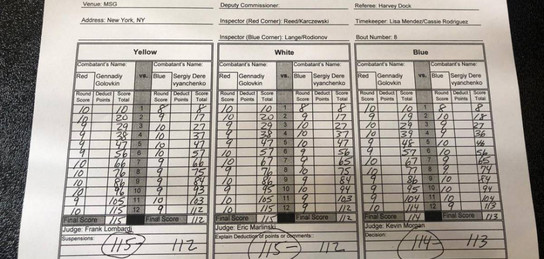 Venue: MSG Deputy Commissioner: Referee: Harvey Dock
Address: New York, NY Inspector (Red Corner): Reed/Karczewski Timekeeper: Lisa Mendez/Cassie Rodriguez
Inspector (Blue Corner): Lange/Rodionov Bout Number: 8
Yellow White Blue
Combatant's Name: Combatant's Name: Combatant's Name: Combatant's Name: Combatant's Name: Combatant's Name:
Red Gennadiy vs. Blue Sergiy Dere Red Gennadiy vs. Blue Sergiy Dere Red Gennadiy vs. Blue Sergiy Dere
Golovkin vyanchenko Golovkin vyanchenko Golovkin vyanchenko
Round Deduct Score Round Deduct Score Round Deduct Score Round Deduct Score Round Deduct Score Round Deduct Score
Score Points Total Score Points Total Score Points Total Score Points Total Score Points Total Score Points Total
10 10 1 8 8 10 10 1 8 8 10 10 1 8 8
10 20 2 9 17 10 20 2 9 17 9 19 2 10 18
9 29 3 10 27 9 29 3 10 27 10 29 3 9 27
9 38 4 10 37 9 38 4 10 37 10 39 4 9 36
9 47 5 10 47 9 47 5 10 47 9 48 5 10 46
9 56 6 10 57 10 57 6 9 56 9 57 6 10 56
10 66 7 9 66 10 67 7 9 65 10 67 7 9 65
10 76 8 9 75 9 76 8 10 75 10 77 8 9 74
10 86 9 9 84 10 86 9 9 84 9 86 9 10 84
10 96 10 9 93 9 95 10 10 94 9 95 10 10 94
9 105 11 10 103 10 105 11 9 103 9 104 11 10 104
10 115 12 9 112 10 115 12 9 112 10 114 12 9 113
Final Score 115 Final Score 112 Final Score 115 Final Score 112 Final Score 114 Final Score 113
Judge: Frank Lombardi Judge: Eric Marlinski Judge: Kevin Morgan
Suspensions: Explain Deduction of points or comments: Decision:
115 112 115 - 112 114 - 113